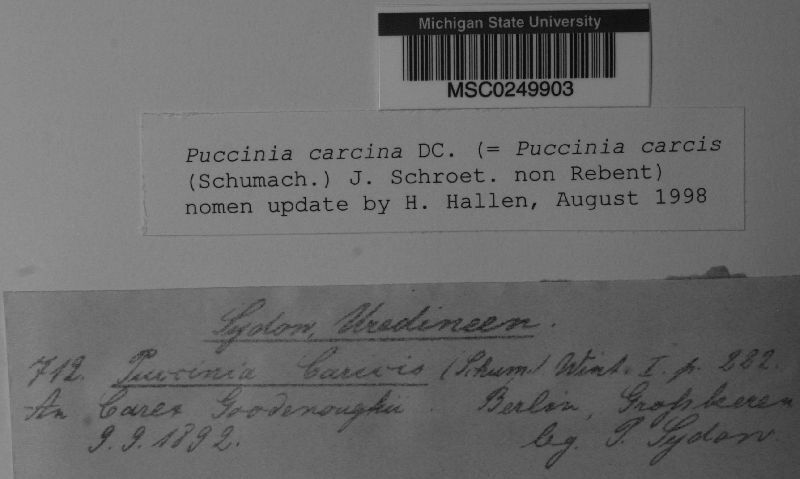 Michigan State University
MSC0249903
Puccinia carcina DC. (= Puccinia carcis
(Schumach.) J. Schroet. non Rebent)
nomen update by H. Hallen, August 1998
Sydow, Uredineen.
712. Puccinia Caricis (Schum.) Wint. I. p. 222.
An Carex Goodenoughii. Berlin, Großbeeren
9.9.1892. leg. P. Sydow.